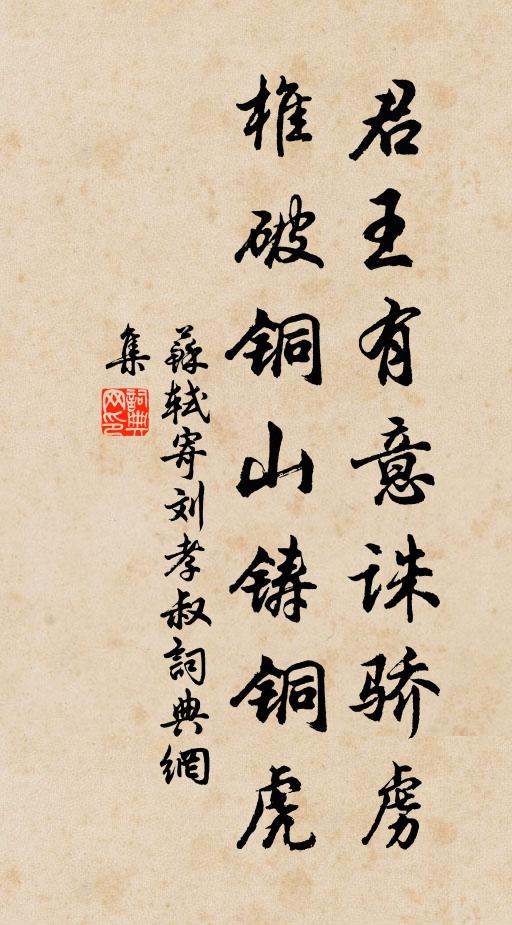 君王有意诛骄虏
椎破铜山铸铜虎
蘇軾寄刘孝叔詞典網
集
詞典網印